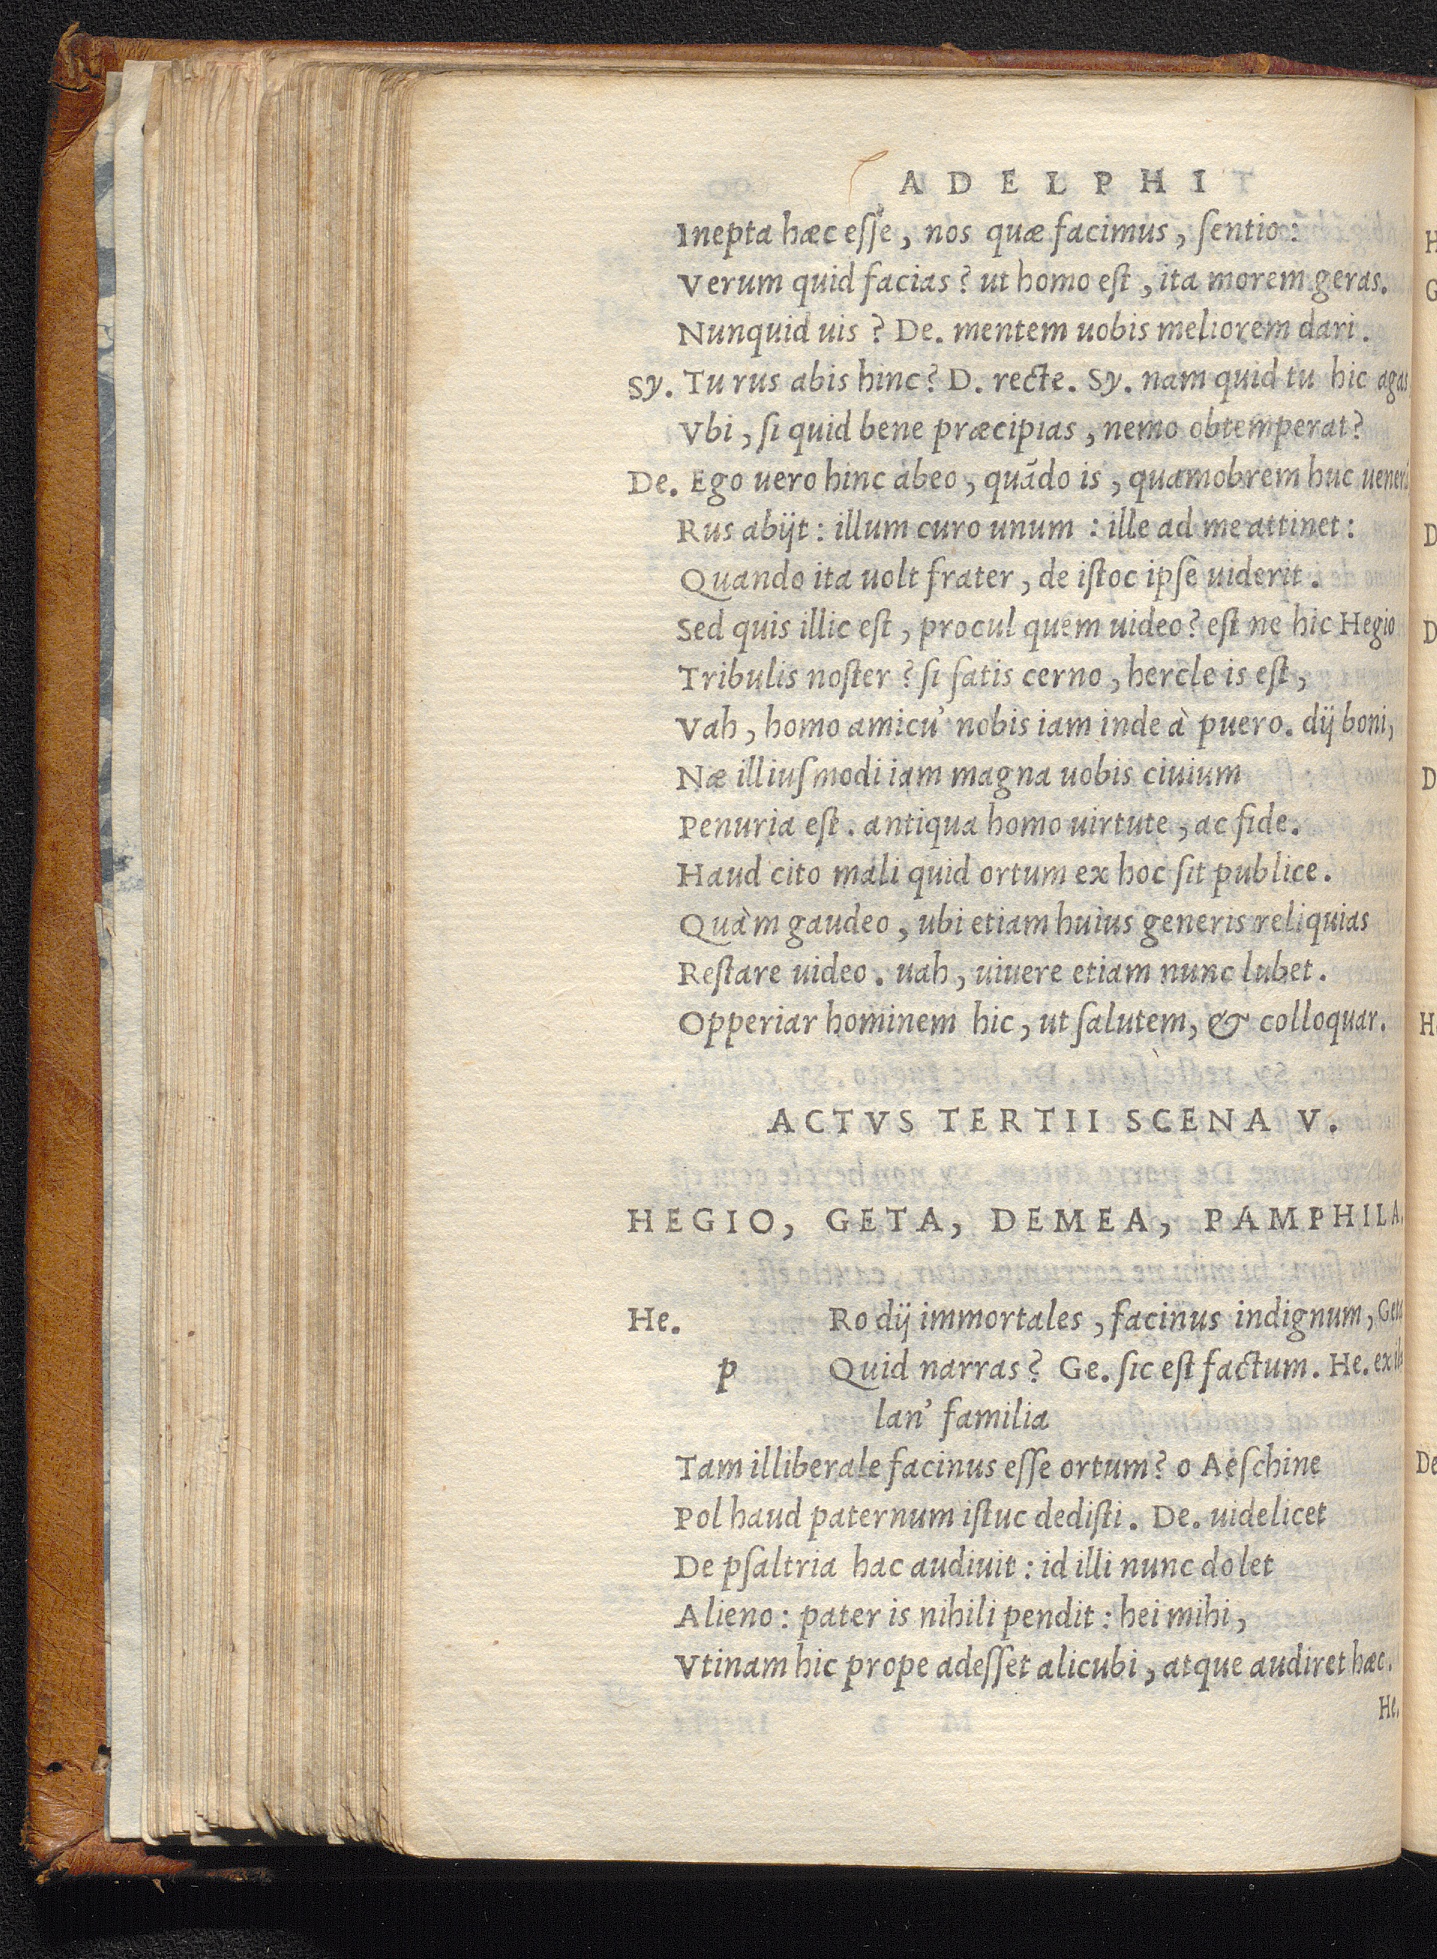 ADELPHI
Inepta hæc eſſe, nos quæ facimus, ſentio:
Verum quid facias? ut homo eſt, ita morem geras.
Nunquid uis? De. mentem uobis meliorem dari.
Sy. Tu rus abis hinc? D. recte. Sy. nam quid tu hic agas
Vbi, ſi quid bene præcipias, nemo obtemperat?
De. Ego uero hinc abeo, quãdo is, quamobrem huc uenerã
Rus abijt: illum curo unum: ille ad me attinet:
Quando ita uolt frater, de iſtoc ipſe uiderit.
Sed quis illic eſt, procul quem uideo? eſt ne hic Hegio
Tribulis noſter? ſi ſatis cerno, hercle is eſt,
Vah, homo amicu' nobis iam inde à puero. dij boni,
Næ illiuſmodi iam magna uobis ciuium
Penuria eſt. antiqua homo uirtute, ac fide.
Haud cito mali quid ortum ex hoc ſit publice.
Quàm gaudeo, ubi etiam huius generis reliquias
Reſtare uideo. uah, uiuere etiam nunc lubet.
Opperiar hominem hic, ut ſalutem, & colloquar.
ACTVS TERTII SCENA V.
HEGIO, GETA, DEMEA, PAMPHILA.
He. Ro dij immortales, facinus indignum, Geta
p Quid narras? Ge. ſic eſt factum. He. ex il
lan' familia
Tam illiberale facinus eſſe ortum? o Aeſchine
Pol haud paternum iſtuc dediſti. De. uidelicet
De pſaltria hac audiuit: id illi nunc dolet
Alieno: pater is nihili pendit: hei mihi,
Vtinam hic prope adeſſet alicubi, atque audiret hæc.
He.